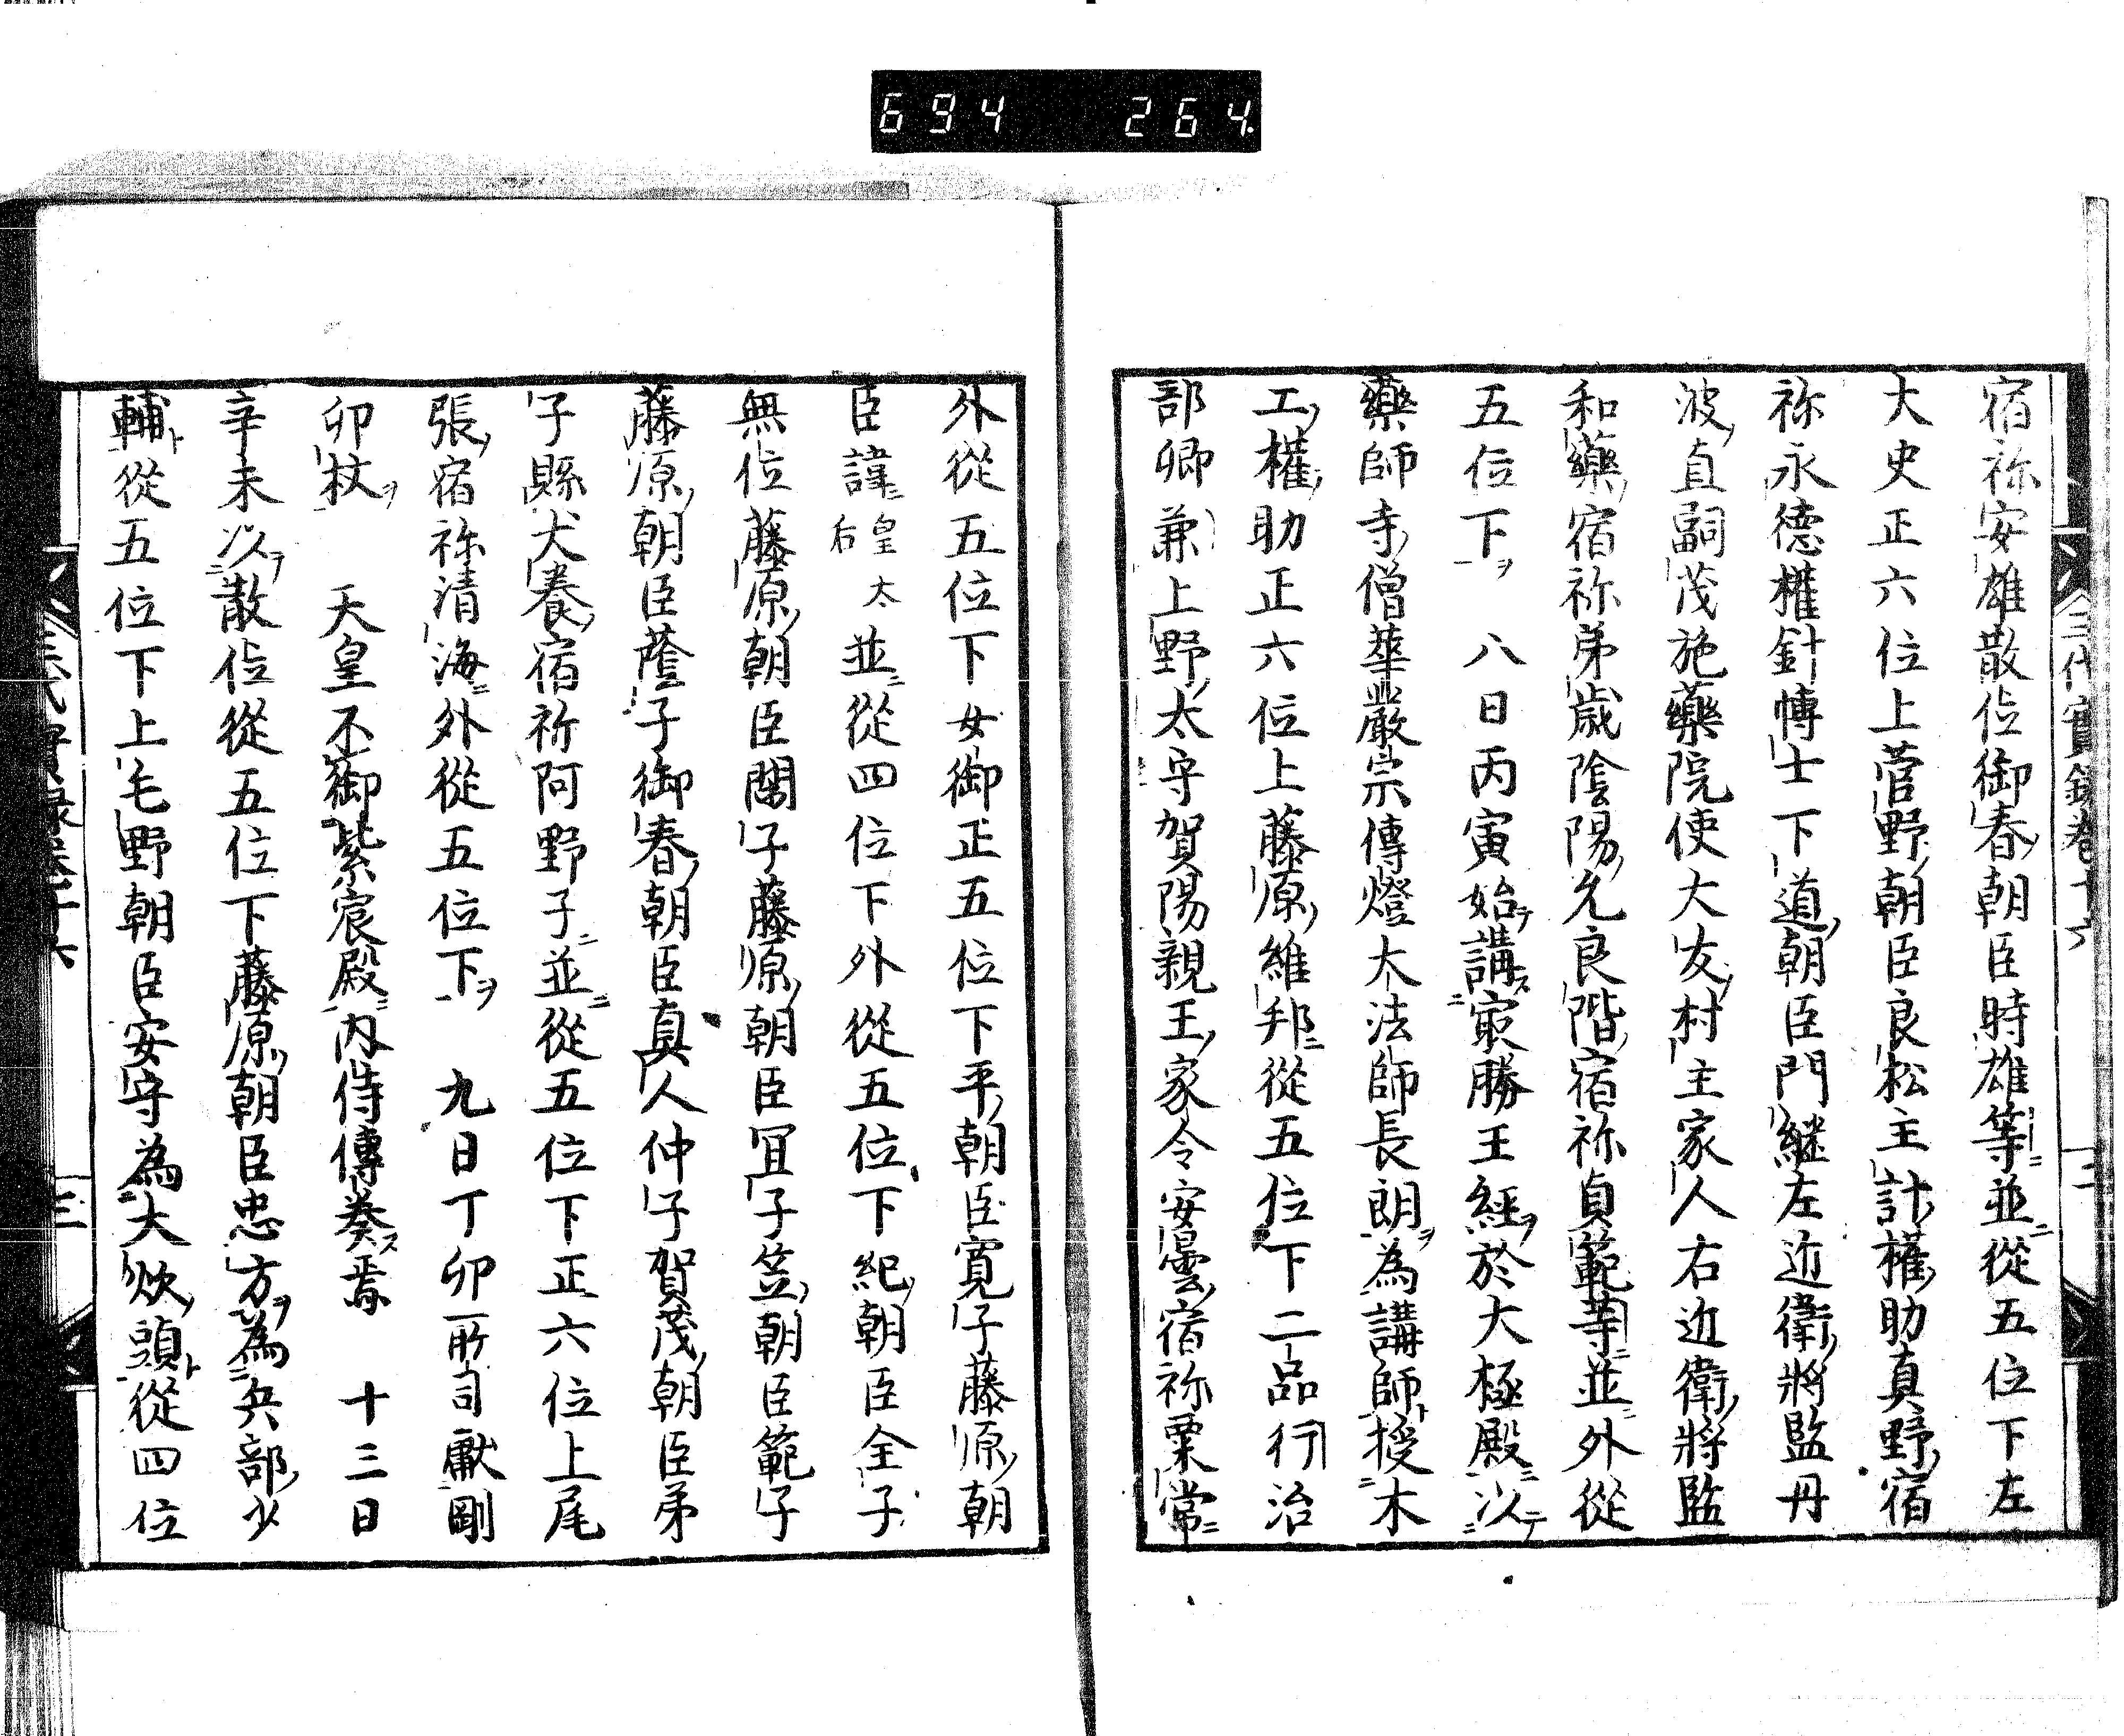 694 264.
宿祢安雄散位御春朝臣時雄等並從五位下左
大史正六位上菅野朝臣良松主計權助真野宿
祢永德權針博士下道朝臣門継左近衛將監丹
波直嗣茂施藥院使大友村主家人右近衛將監
和藥宿祢弟歲陰陽允良階宿祢貞範等並外從
五位下ヲ 八日丙寅始テ講ス㝡勝王經ヲ於大極殿ニ以テ
藥師寺僧華嚴宗傳燈大法師長朗ヲ為講師ト授木
工權助正六位上藤原維邦ニ從五位下二品行治
部卿兼上野太守賀陽親王家令安曇宿祢粟常ニ
外從五位下女御正五位下平朝臣寬子藤原朝
臣諱皇太后並從四位下外從五位下紀朝臣全子
無位藤原朝臣閑子藤原朝臣冝子笠朝臣範子
藤原朝臣蔭子御春朝臣真人仲子賀茂朝臣弟
子縣犬養宿祢阿野子並從五位下正六位上尾
張宿祢清海ニ外從五位下ヲ 九日丁卯所司獻剛
卯杖ヲ 天皇不御紫宸殿ニ内侍傳奏ス焉 十三日
辛未以テ散位從五位下藤原朝臣忠方ヲ為兵部少
輔ト從五位下上毛野朝臣安守為大炊頭ト從四位
三代實録卷十六
三